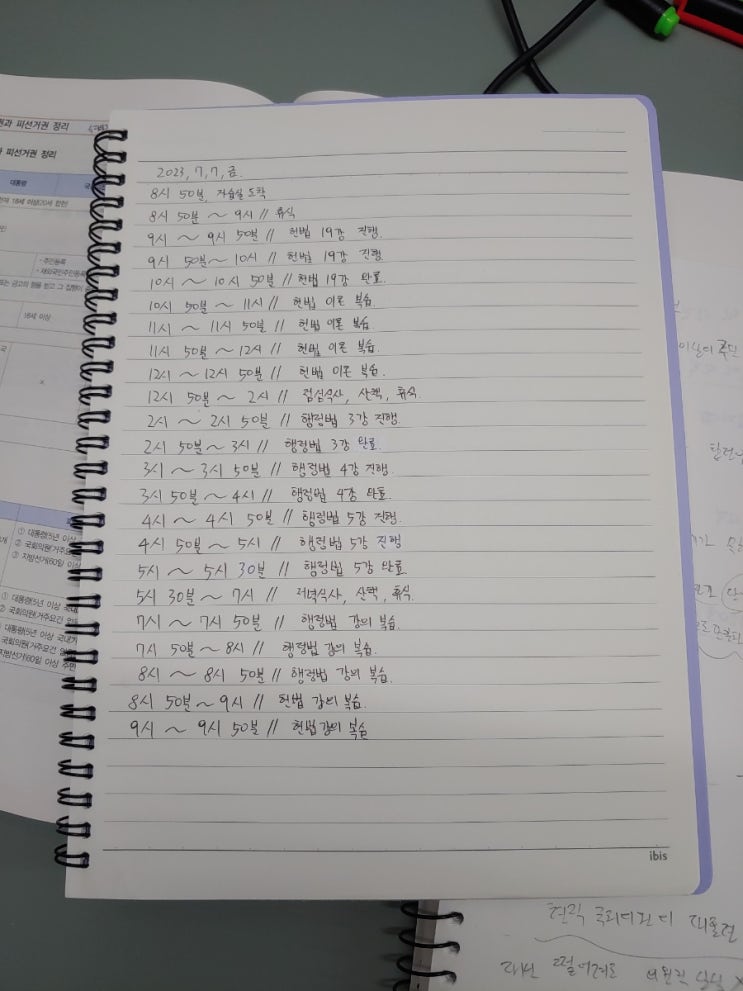 2023, 7, 7, 금.
8시 50분, 자습실 도착
8시 50분 ~ 9시 // 휴식
9시 ~ 9시 50분 // 헌법 19강 진행.
9시 50분 ~ 10시 // 헌법 19강 진행
10시 ~ 10시 50분 // 헌법 19강 완료.
10시 50분 ~ 11시 // 헌법 이론 복습.
11시 ~ 11시 50분 // 헌법 이론 복습.
11시 50분 ~ 12시 // 헌법 이론 복습.
12시 ~ 12시 50분 // 헌법 이론 복습.
12시 50분 ~ 2시 // 점심식사, 산책, 휴식.
2시 ~ 2시 50분 // 행정법 3강 진행.
2시 50분 ~ 3시 // 행정법 3강 완료.
3시 ~ 3시 50분 // 행정법 4강 진행.
3시 50분 ~ 4시 // 행정법 4강 완료.
4시 ~ 4시 50분 // 행정법 5강 진행.
4시 50분 ~ 5시 // 행정법 5강 진행
5시 ~ 5시 30분 // 행정법 5강 완료.
5시 30분 ~ 7시 // 저녁식사, 산책, 휴식.
7시 ~ 7시 50분 // 행정법 강의 복습.
7시 50분 ~ 8시 // 행정법 강의 복습.
8시 ~ 8시 50분 // 행정법 강의 복습.
8시 50분 ~ 9시 // 헌법 강의 복습.
9시 ~ 9시 50분 // 헌법 강의 복습
ibis
피선거권 정리
피선거권 정리
대통령
18세 이상
・주민등록
・재외국민주민등록
18세 이상
×
① 대통령(5년 이상
② 국회의원(거주요건
③ 지방선거(60일 이상
① 대통령(5년 이상 국내
② 국회의원(거주요건
대통령(5년 이상 국내거
국회의원(거주요건
지방선거(60일 이상 주민
떨어져도